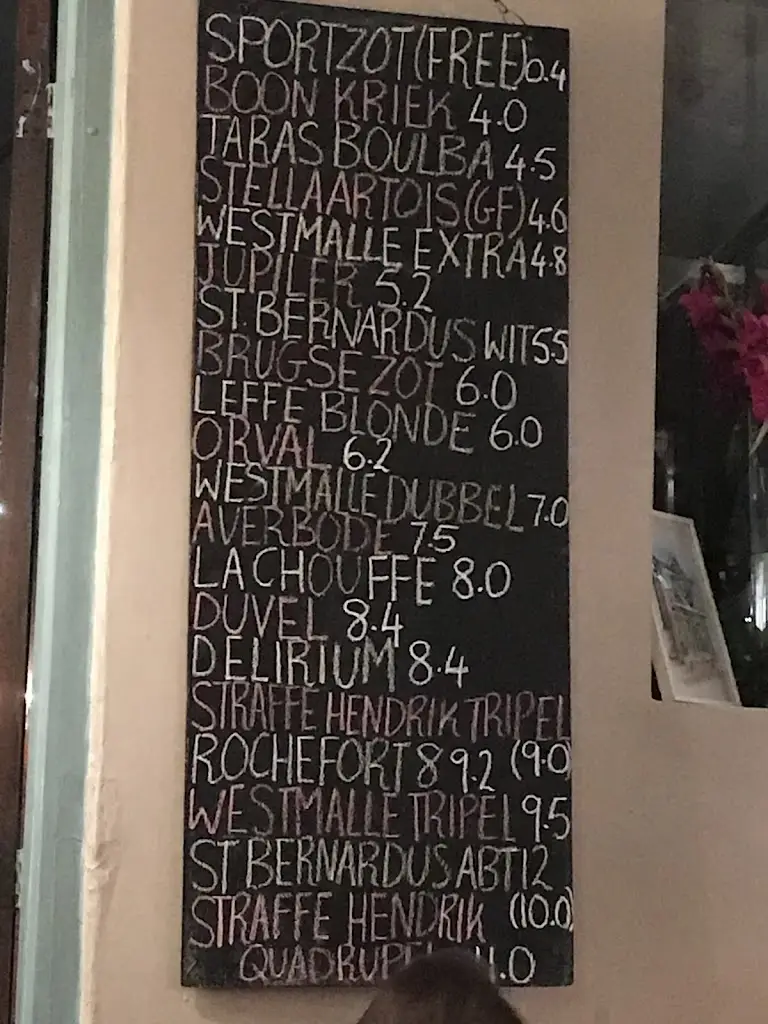 SPORTZOT(FREE)0.4
BOON KRIEK 4.0
TARAS BOULBA 4.5
STELLA ARTOIS(GF)4.6
WESTMALLE EXTRA 4.8
JUPILER 5.2
ST.BERNARDUS WIT 5.5
BRUGSE ZOT 6.0
LEFFE BLONDE 6.0
ORVAL 6.2
WESTMALLE DUBBEL 7.0
AVERBODE 7.5
LA CHOUFFE 8.0
DUVEL 8.4
DELIRIUM 8.4
STRAFFE HENDRIK TRIPEL
ROCHEFORT 8 9.2 (9.0)
WESTMALLE TRIPEL 9.5
ST BERNARDUS ABT12
STRAFFE HENDRIK (10.0)
QUADRUPEL 11.0